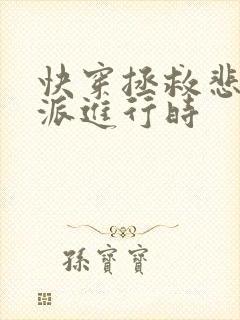 快穿拯救悲
派進行時
孫寶寶